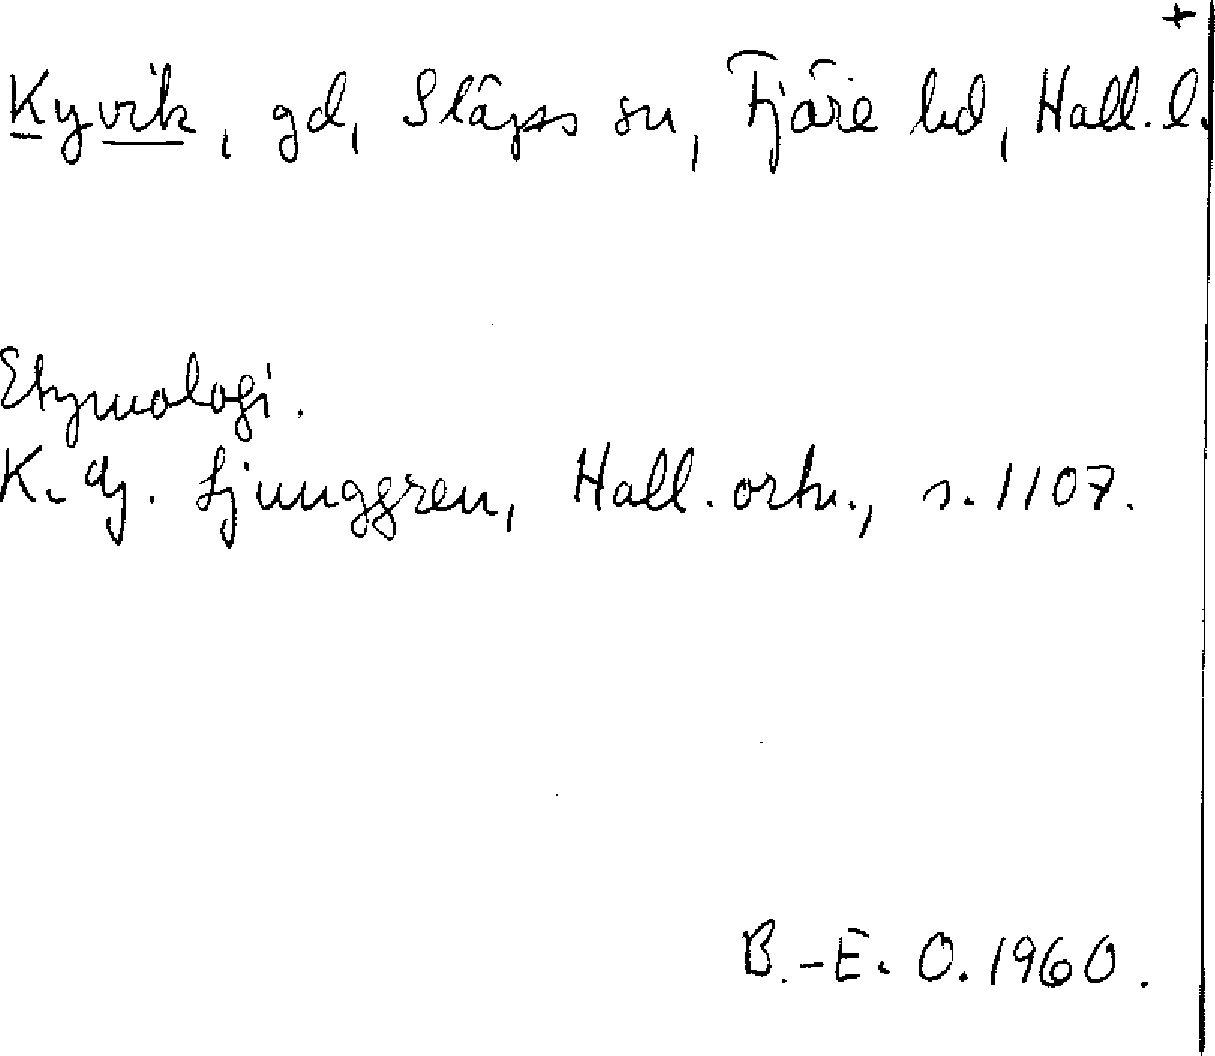 +
Kyvik, gd, Släps sn, Fjäre hd, Hall. l.
Etymologi.
K. G. Ljunggren, Hall. ortn., s. 1107.
B.-E. O. 1960.